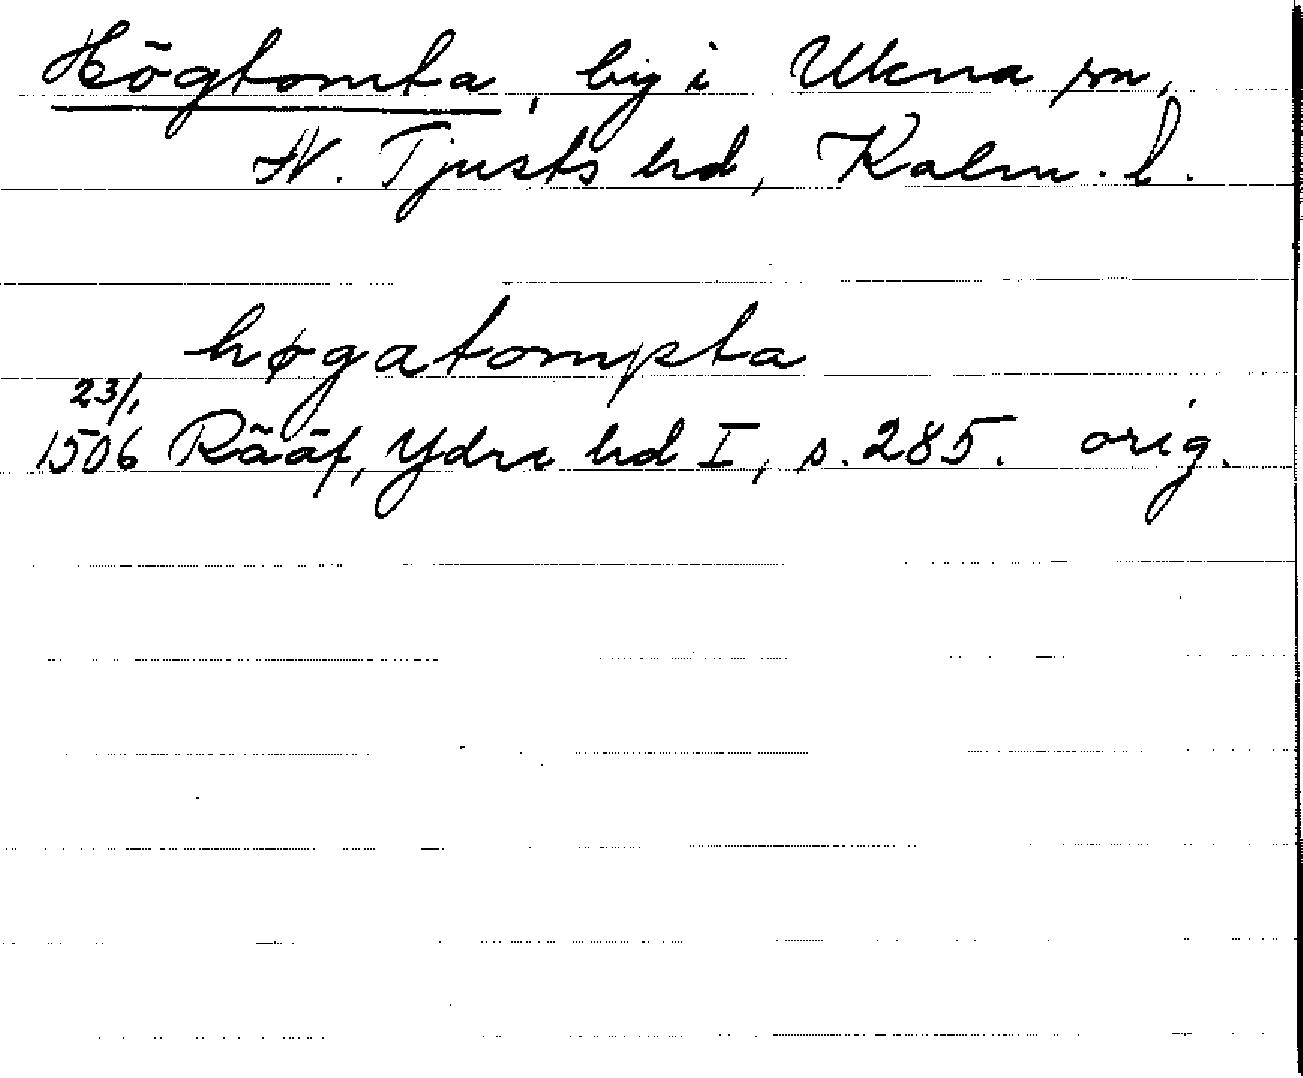 Högtomta, by i Ukna sn,
N. Tjusts hd, Kalm. l.
høgatompta
23/1
1506 Rääf, Ydre hd I, s. 285. orig.